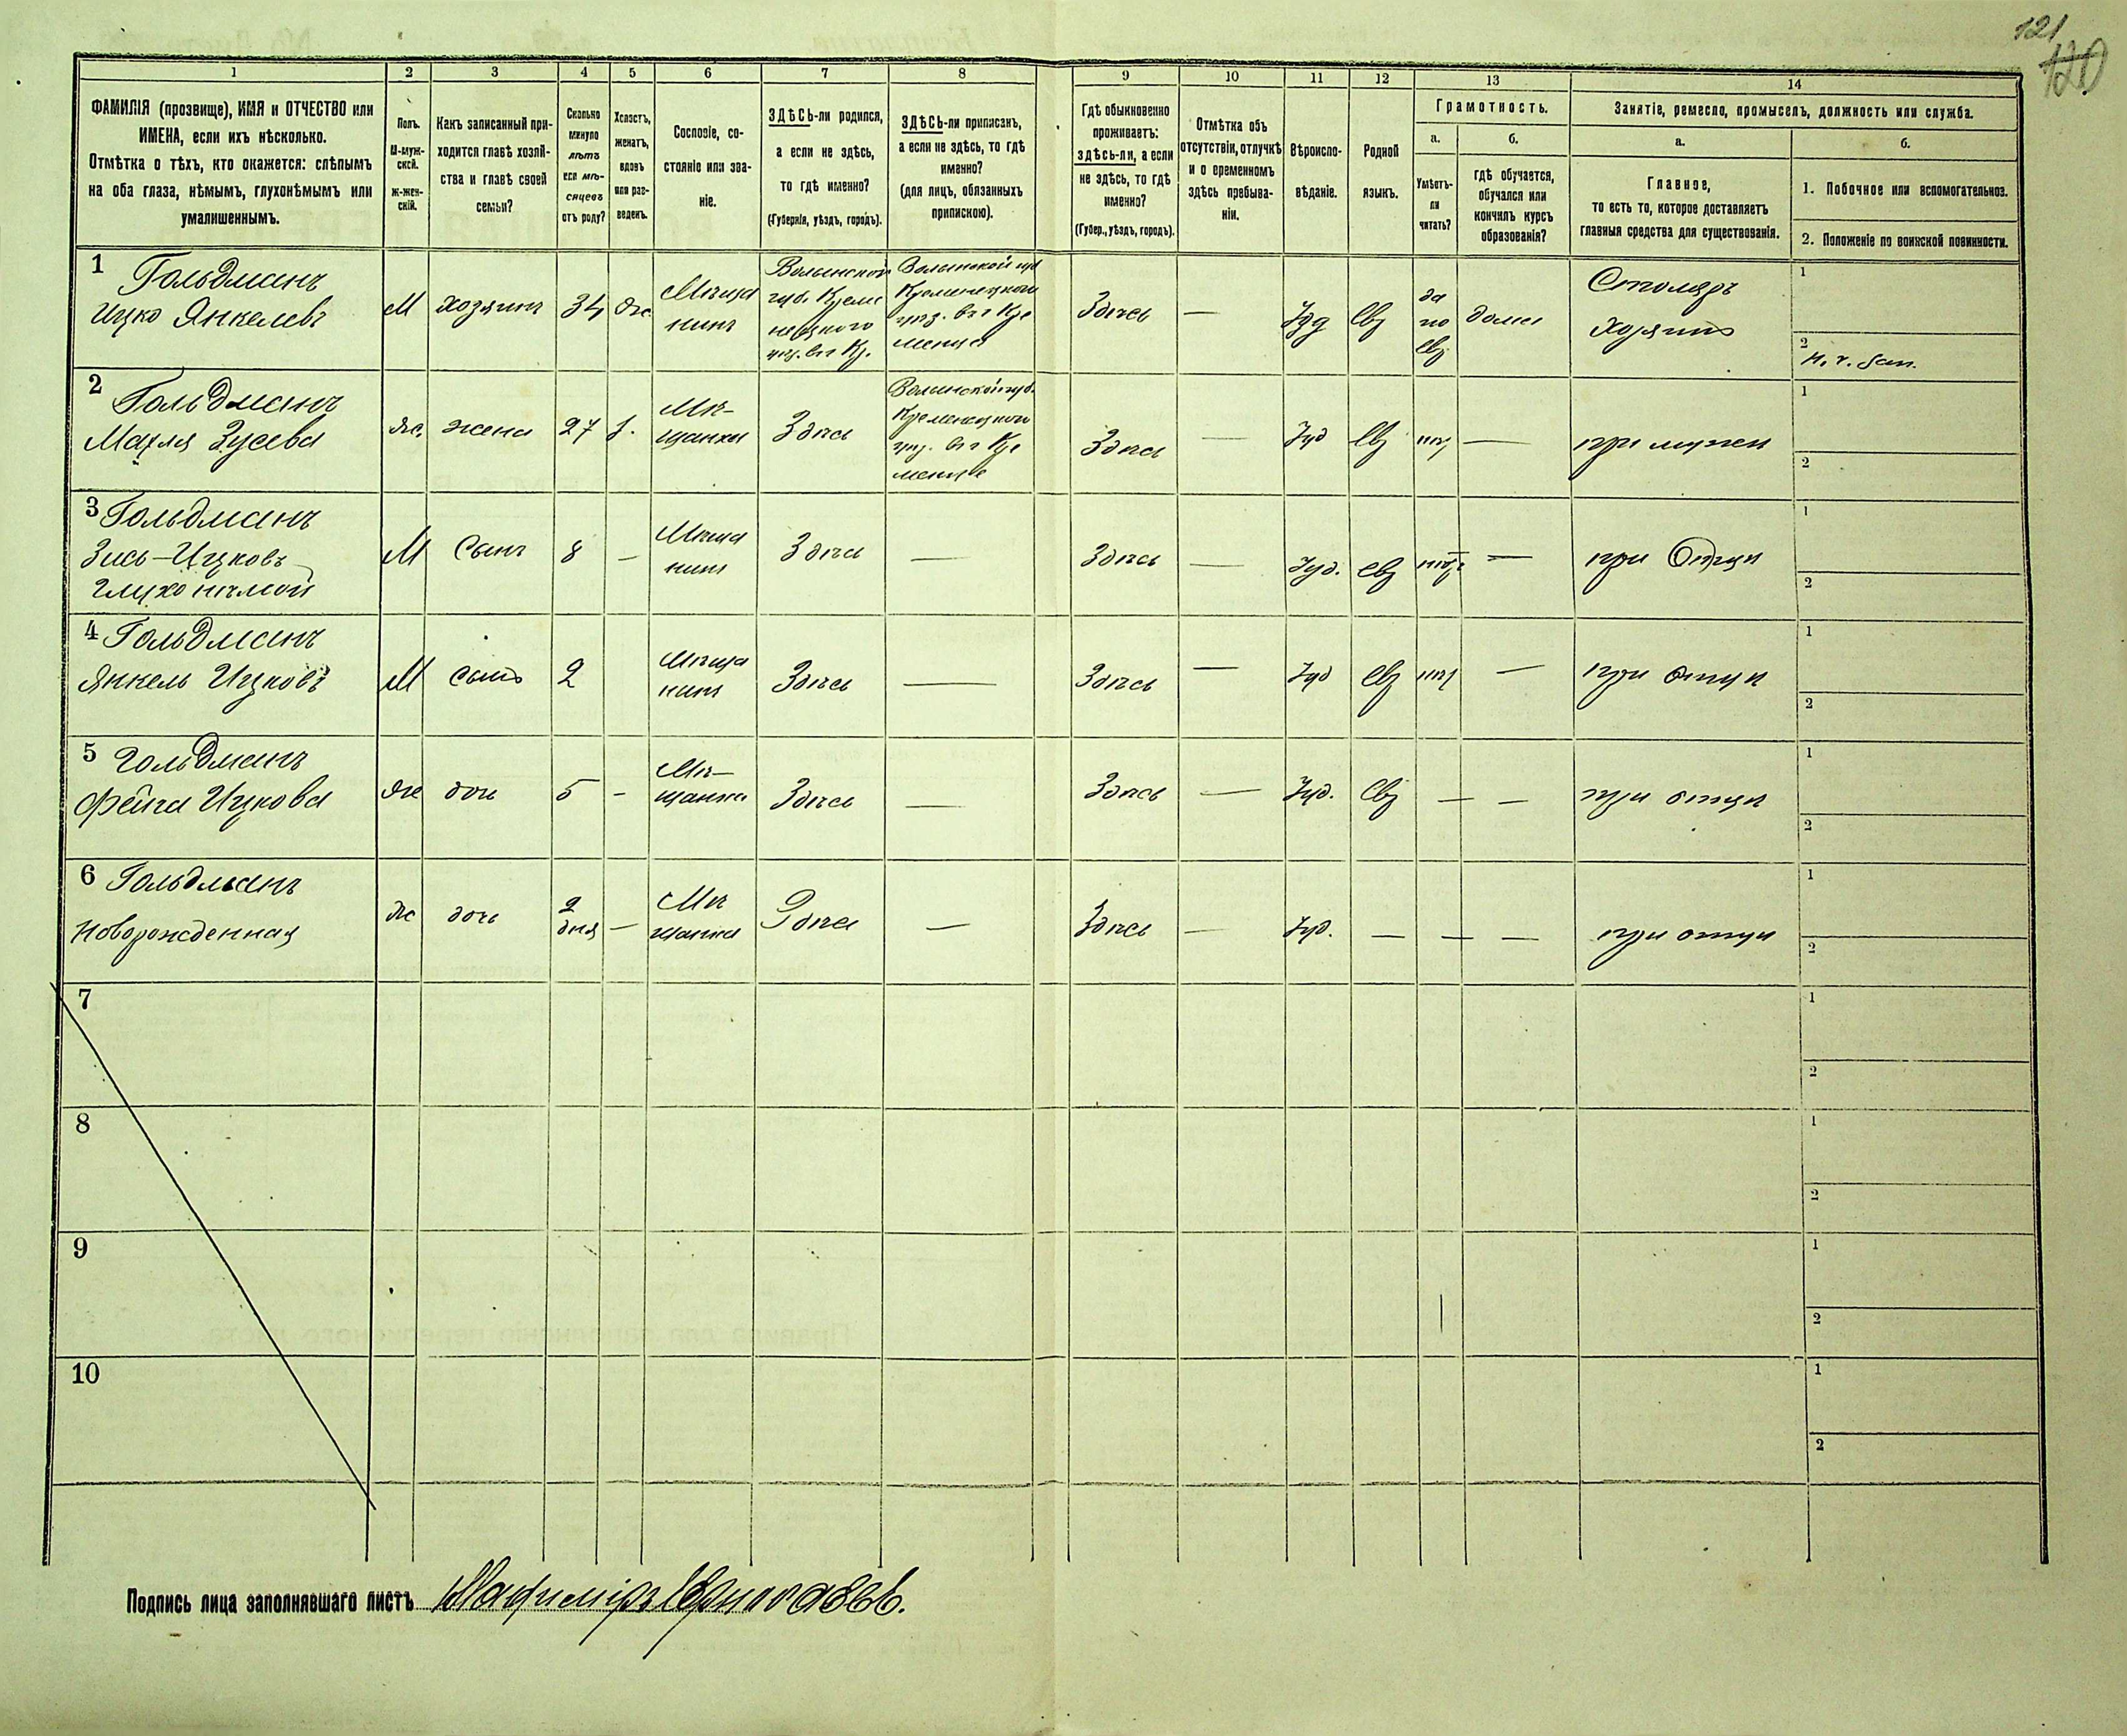 121
120
1
2
3
4
5
6
7
8
9
10
11
12
13
14
ФАМИЛІЯ (прозвище), ИМЯ и ОТЧЕСТВО или
ИМЕНА, если ихъ нѣсколько.
Отмѣтка о тѣхъ, кто окажется: слѣпымъ
на оба глаза, нѣмымъ, глухонѣмымъ или
умалишеннымъ.
Полъ.
М-муж-
ской.
Ж-жен-
скій.
Какъ записанный при-
ходится главѣ хозяй-
ства и главѣ своей
семьи?
Сколько
минуло
лѣтъ
или мѣ-
сяцевъ
отъ роду?
Холостъ,
женатъ,
вдовъ
или раз-
веденъ.
Сословіе, со-
стояніе или зва-
ніе.
ЗДѢСЬ-ли родился,
а если не здѣсь,
то гдѣ именно?
(Губернія, уѣздъ, городъ).
ЗДѢСЬ-ли приписанъ,
а если не здѣсь, то гдѣ
именно?
(для лицъ, обязанныхъ
припискою).
Гдѣ обыкновенно
проживаетъ:
здѣсь-ли, а если
не здѣсь, то гдѣ
именно?
(Губер., уѣздъ, городъ).
Отмѣтка объ
отсутствіи, отлучкѣ
и о временномъ
здѣсь пребыва-
ніи.
Вѣроиспо-
вѣданіе.
Родной
языкъ.
Грамотность.
а.
Умѣетъ-
ли
читать?
б.
гдѣ обучается,
обучался или
кончилъ курсъ
образованія?
Занятіе, ремесло, промыселъ, должность или служба.
а.
Главное,
то есть то, которое доставляетъ
главныя средства для существованія.
б.
1. Побочное или вспомогательное.
2. Положеніе по воинской повинности.
1 Гольдманъ
Ицко Янкелевъ
М
хозяинъ
34
ж
Мѣща
нинъ
Волынской
губ. Креме
нецкого
уѣз. въ г Кр.
Волынской губ
Кременецкого
уѣз. въ г Кре
менцѣ
Здѣсь
—
Іуд
Евр
да
по
Евр
дома
Столяръ
Хозяинъ
1
2
2 Гольдманъ
Махля Зусева
ж.
жена
27
з.
Мѣ-
щанка
Здѣсь
Волынской губ.
Кременецкого
уѣз. въ г Кре
менцѣ
Здѣсь
—
Іуд
Евр
нѣт
—
при мужѣ
1
2
3 Гольдманъ
Зись-Ицковъ
Глухонѣмой
М
Сынъ
8
–
Мѣща
нинъ
Здѣсь
—
Здѣсь
—
Іуд.
евр
нѣт
—
при Отцѣ
1
2
4 Гольдманъ
Янкель Ицковъ
М
сынъ
2
Мѣща
нинъ
Здѣсь
—
Здѣсь
—
Іуд
Евр
нѣт
—
при отцѣ
1
2
5 Гольдманъ
Фейга Ицкова
ж
дочь
5
–
Мѣ-
щанка
Здѣсь
—
Здѣсь
—
Іуд.
Евр
—
—
при отцѣ
1
2
6 Гольдманъ
Новорожденная
ж
дочь
2
дня
–
Мѣ
щанка
Здѣсь
—
Здѣсь
—
Іуд.
—
—
—
при отцѣ
1
2
7
1
2
8
1
2
9
1
2
10
1
2
Подпись лица заполнявшаго листъ